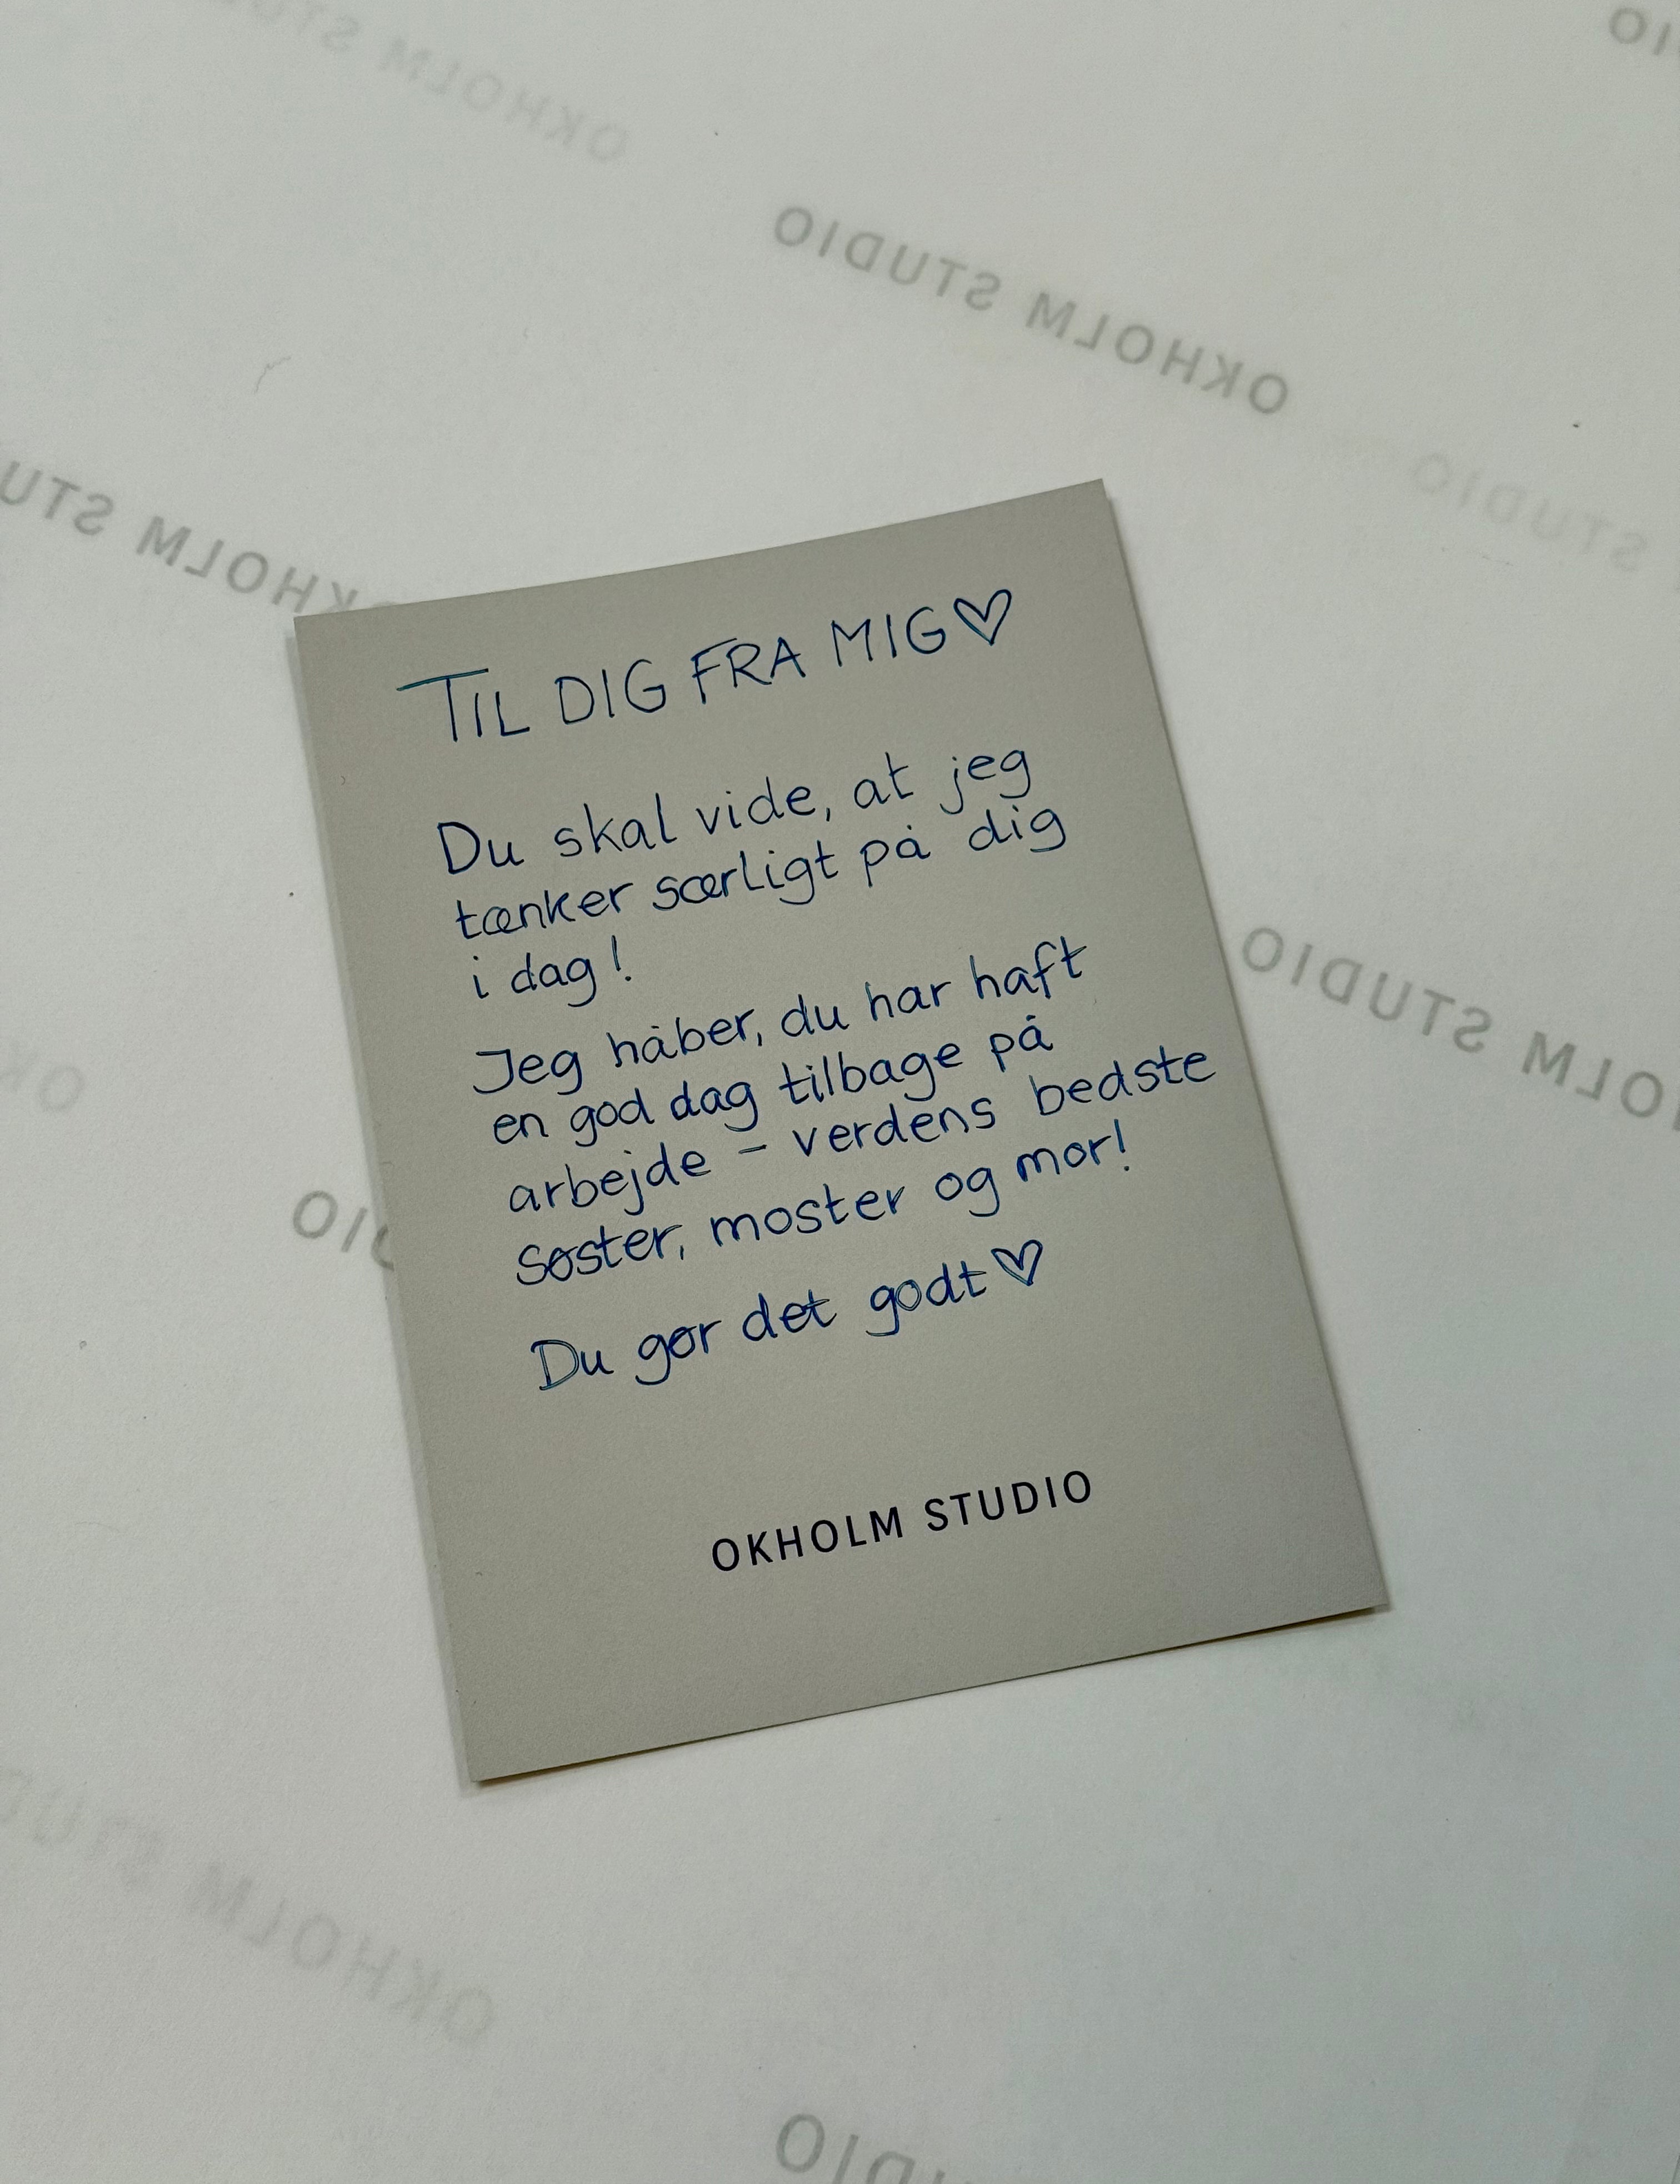 OKHOLM STUDIO
OKHOLM STUDIO
TIL DIG FRA MIG♡
Du skal vide, at jeg
tænker særligt på dig
i dag!
Jeg håber, du har haft
en god dag tilbage på
arbejde - verdens bedste
søster, moster og mor!
Du gør det godt♡
OKHOLM STUDIO
OKHOLM STUDIO